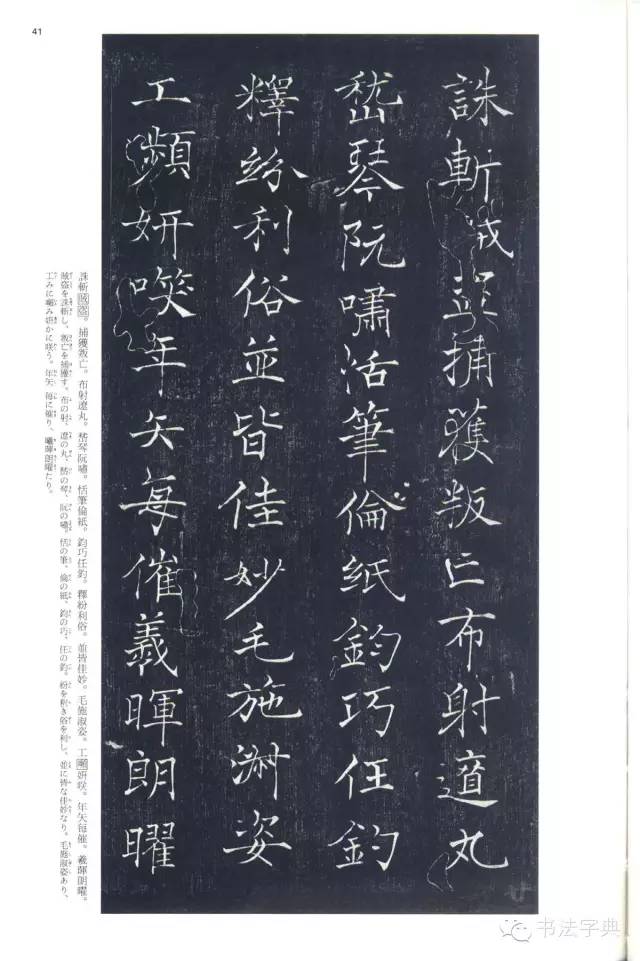 41
誅斬賊盜捕獲叛亡布射遼丸
嵇琴阮嘯恬筆倫紙鈞巧任釣
釋紛利俗並皆佳妙毛施淑姿
工頻妍咲年矢每催羲暉朗曜
誅斬賊盜。捕獲叛亡。布射遼丸。嵆琴阮嘯。恬筆倫紙。鈞巧任釣。釋紛利俗。並皆佳妙。毛施淑姿。工嚬妍咲。年矢每催。羲暉朗曜。
賊盜を誅斬し、叛亡を捕獲す。布の射、遼の丸、嵆の琴、阮の嘯。恬の筆、倫の紙、鈞の巧、任の釣。紛を釈き俗を利し、並に皆な佳妙なり。毛施淑姿あり、
工みに嚬み妍かに咲う。年矢 每に催り、曦暉朗曜たり。
书法字典